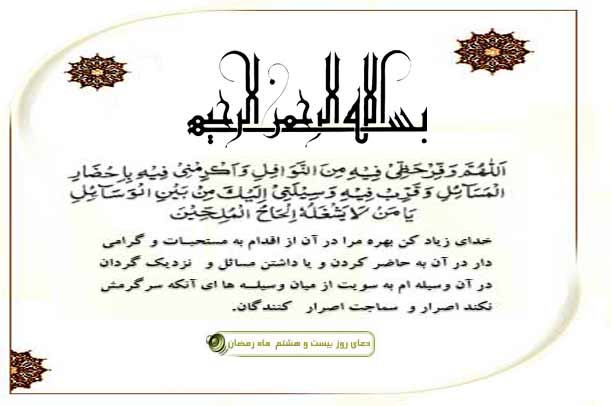 بسم الله الرحمن الرحیم
اَللّهُمَّ وَفِّرْ حَظّی فیهِ مِنَ النَّوافِلِ وَاَکْرِمْنی فیهِ بِاِحْضارِ
الْمَسآئِلِ وَقَرِّبْ فیهِ وَسیلَتی اِلَیْکَ مِنْ بَیْنِ الْوَسآئِلِ
یا مَنْ لا یَشْغَلُهُ اِلْحاحُ الْمُلِحّینَ
خدای زیاد کن بهره مرا در آن از اقدام به مستحبات و گرامی
دار در آن به حاضر کردن و یا داشتن مسائل و نزدیک گردان
در آن وسیله ام به سویت از میان وسیلـه ها ای آنکه سرگرمش
نکند اصرار و سماجت اصرار کنندگان.
دعای روز بیست و هشتم ماه رمضان